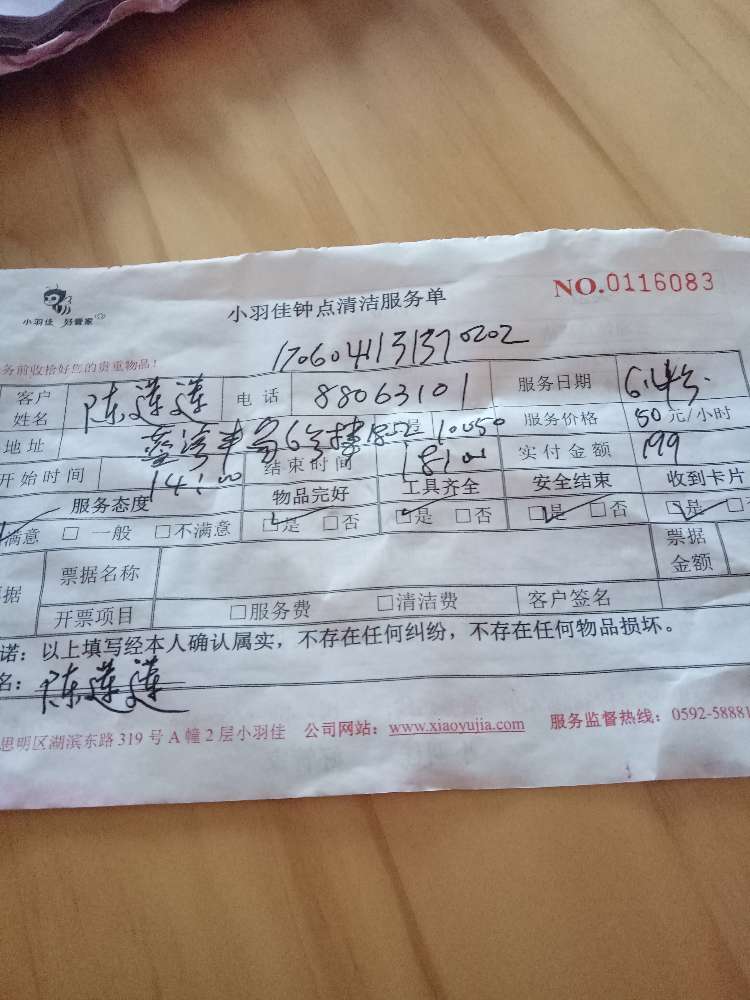 小羽佳 好管家
小羽佳钟点清洁服务单
NO.0116083
务前收拾好您的贵重物品!
客户姓名 陈莲莲 电话 88063101 服务日期
地址 服务价格 50元/小时
开始时间 14:00 结束时间 18:00 实付金额 199
服务态度 物品完好 工具齐全 安全结束 收到卡片
满意 □ 一般 □不满意 □是 □否 □是 □否 □是 □否 □是
据 票据名称 票据金额
开票项目 □服务费 □清洁费 客户签名
诺:以上填写经本人确认属实,不存在任何纠纷,不存在任何物品损坏。
名:陈莲莲
思明区湖滨东路319号A幢2层小羽佳 公司网站:www.xiaoyujia.com 服务监督热线:0592-58881